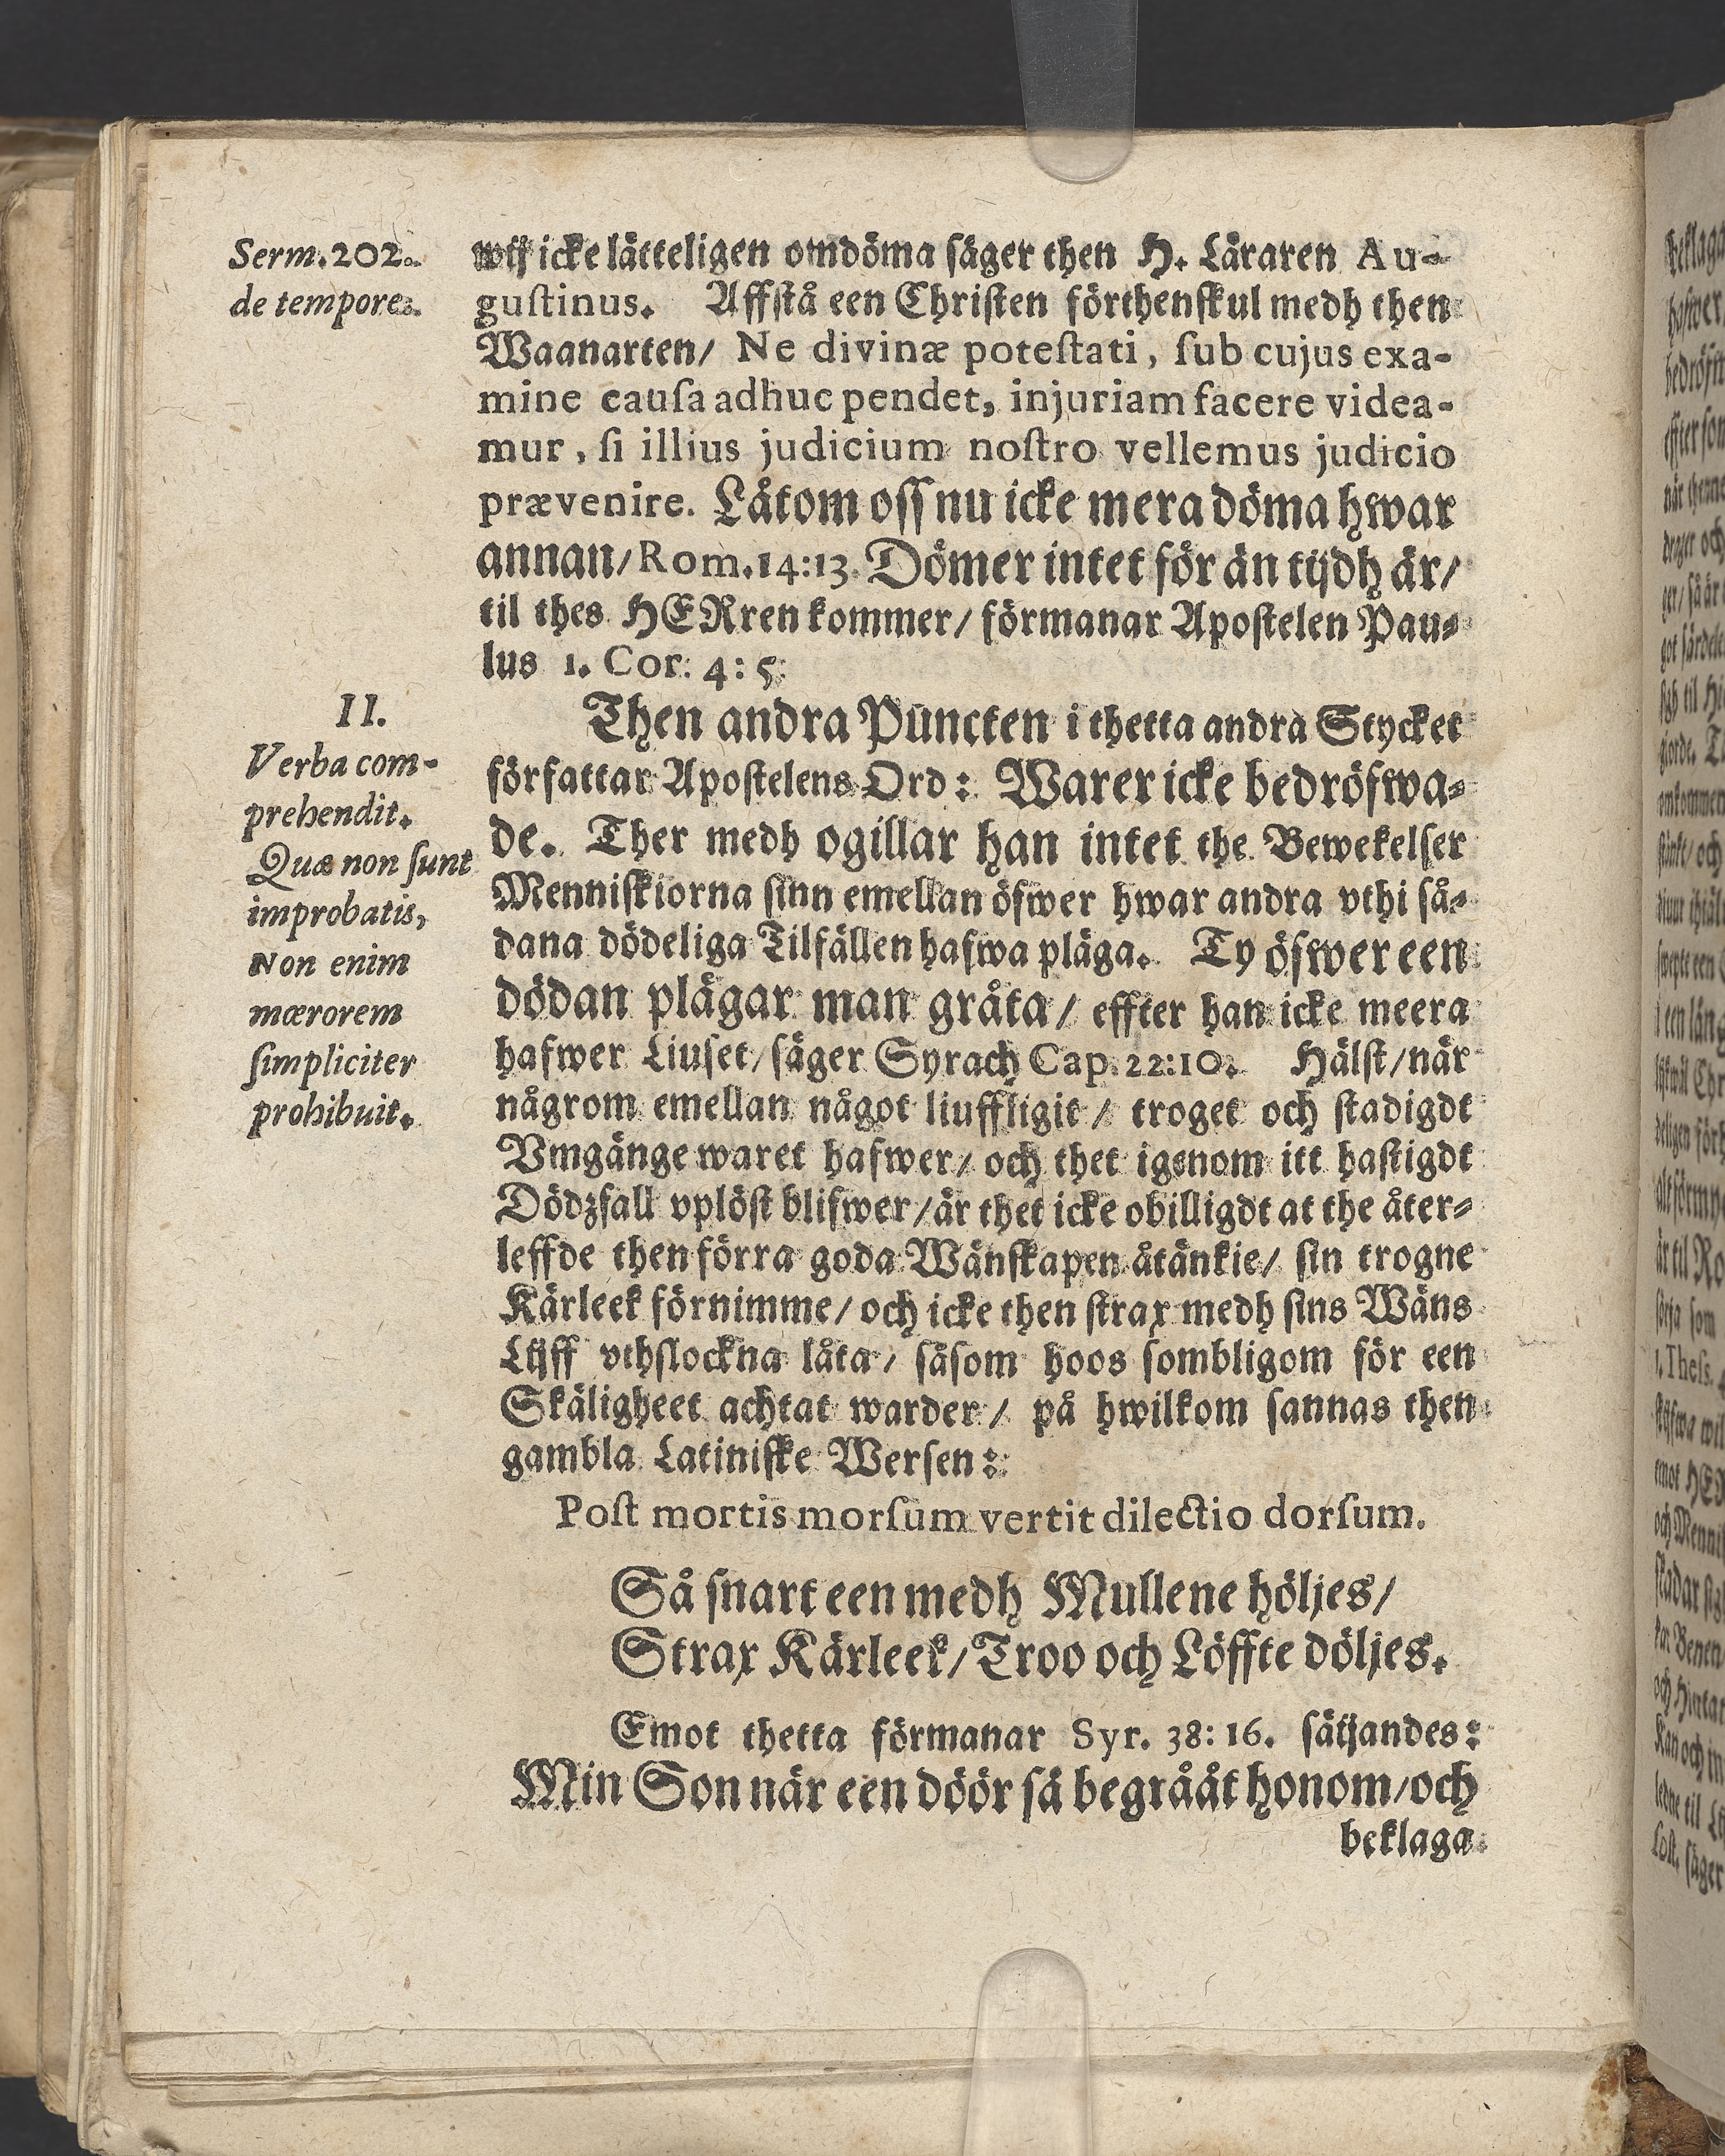 Serm. 202.
de tempore.
wij icke lätteligen omdöma säger then H. Läraren Au-
gustinus. Affstå een Christen förthenskul medh then
Waanarten/ Ne divinæ potestati, sub cujus exa-
mine causa adhuc pendet, injuriam facere videa-
mur, si illius judicium nostro vellemus judicio
prævenire. Låtom oss nu icke mera döma hwar
annan/ Rom. 14:13. Dömer intet för än tijdh är/
til thes HERren kommer/ förmanar Apostelen Pau-
lus 1. Cor. 4: 5.
II.
Verba com-
prehendit.
Quæ non sunt
improbatis,
Non enim
mœrorem
simpliciter
prohibuit.
Then andra Puncten i thetta andra Stycket
författar Apostelens Ord: Warer icke bedröfwa-
de. Ther medh ogillar han intet the Bewekelser
Menniskiorna sinn emellan öfwer hwar andra vthi så-
dana dödeliga Tilfällen hafwa pläga. Ty öfwer een
dödan plägar man gråta/ effter han icke meera
hafwer Liuset/ säger Syrach Cap. 22:10. Hälst/ när
någrom emellan något liuffligit/ troget och stadigdt
Vmgänge waret hafwer/ och thet igenom itt hastigdt
Dödzfall vplöst blifwer/ är thet icke obilligdt at the åter-
leffde then förra goda Wänskapen åtänkie/ sin trogne
Kärleek förnimme/ och icke then strax medh sins Wäns
Lijff vthslockna låta/ såsom hoos sombligom för een
Skäligheet achtat warder/ på hwilkom sannas then
gambla Latiniske Wersen:
Post mortis morsum vertit dilectio dorsum.
Så snart een medh Mullene höljes/
Strax Kärleek/ Troo och Löffte döljes.
Emot thetta förmanar Syr. 38: 16. säijandes:
Min Son när een döör så begrååt honom/ och
beklaga